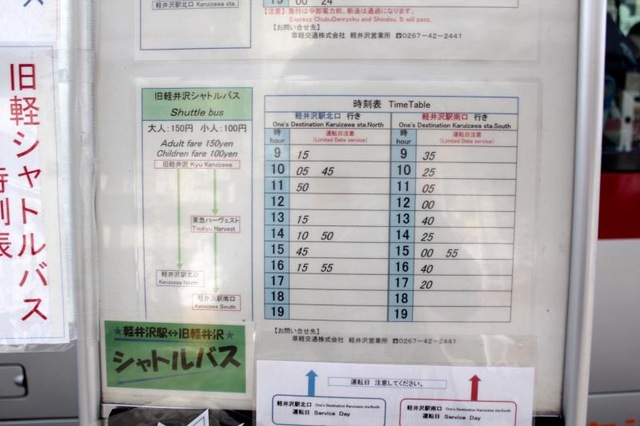 軽井沢駅北口 Karuizawa sta.
00 24
【注意】 急行は中部電力前、新道は通過になります。
Express ChubuDenryoku and Shindou. It will pass.
【お問い合せ先】
草軽交通株式会社 軽井沢営業所 ☎0267-42-2441
旧軽シャトルバス
時刻表
旧軽井沢シャトルバス
Shuttle bus
大人:150円 小人:100円
Adult fare 150yen
Children fare 100yen
旧軽井沢 Kyu Karuizawa
東急ハーヴェスト
Toukyu Harvest
軽井沢駅北口
Karuizawa North
軽井沢駅南口
Karuizawa South
★軽井沢駅⇔旧軽井沢★
シャトルバス
時刻表 TimeTable
軽井沢駅北口 行き
One's Destination Karuizawa sta.North
軽井沢駅南口 行き
One's Destination Karuizawa sta.South
時 hour 運転日注意 (Limited Date service) 時 hour 運転日注意 (Limited Date service)
9 15 9 35
10 05 45 10 25
11 50 11 05
12 12 00
13 15 13 40
14 10 50 14 25
15 45 15 00 55
16 15 55 16 40
17 17 20
18 18
19 19
【お問い合せ先】
草軽交通株式会社 軽井沢営業所 ☎0267-42-2441
運転日 注意してください。
軽井沢駅北口 One's Destination Karuizawa sta.North
運転日 Service Day
軽井沢駅南口 One's Destination Karuizawa sta.South
運転日 Service Day